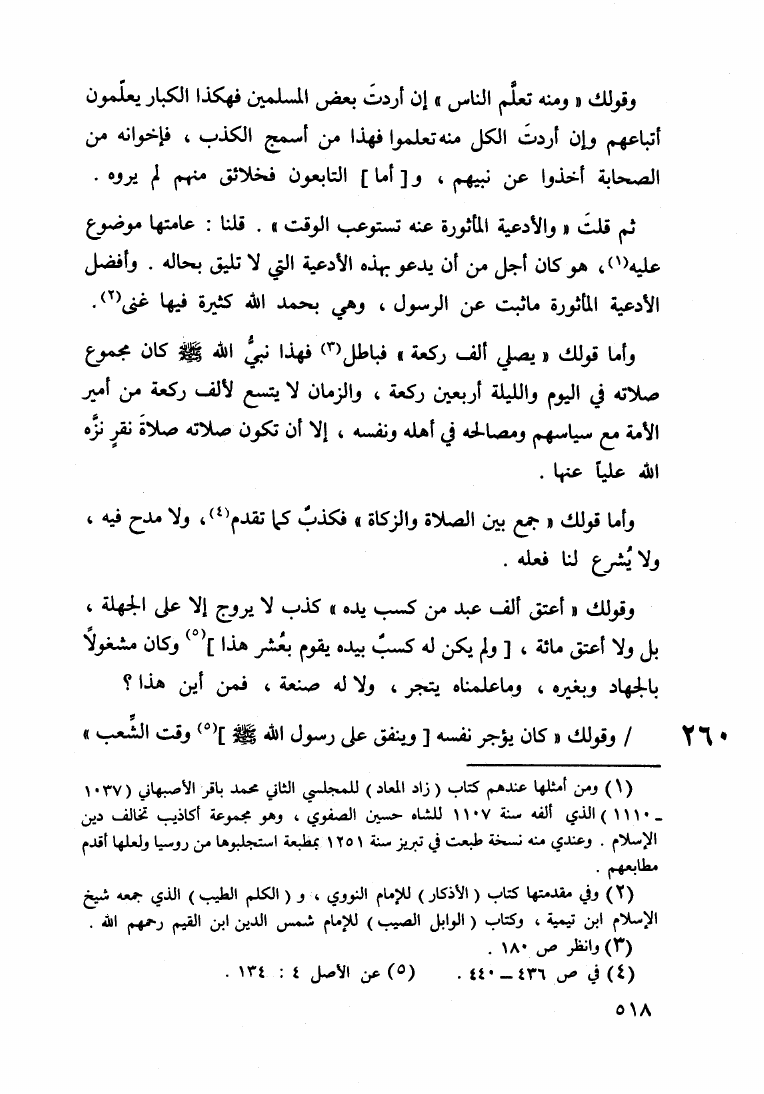 وقولك « ومنه تعلَّم الناس » إن أردتَ بعض المسلمين فهكذا الكبار يعلّمون
أتباعهم وإن أردتَ الكل منه تعلموا فهذا من أسمج الكذب ، فإخوانه من
الصحابة أخذوا عن نبيهم ، و[ أما ] التابعون فخلائق منهم لم يروه .
ثم قلتَ « والأدعية المأثورة عنه تستوعب الوقت » . قلنا : عامتها موضوع
عليه(١)، هو كان أجل من أن يدعو بهذه الأدعية التي لا تليق بحاله . وأفضل
الأدعية المأثورة ماثبت عن الرسول ، وهي بحمد الله كثيرة فيها غنى(٢).
وأما قولك « يصلي ألف ركعة » فباطل(٣) فهذا نبيُّ الله ﷺ كان مجموع
صلاته في اليوم والليلة أربعين ركعة ، والزمان لا يتسع لألف ركعة من أمير
الأمة مع سياسهم ومصالحه في أهله ونفسه ، إلا أن تكون صلاته صلاةَ نقرٍ نزَّه
الله علياً عنها .
وأما قولك « جمع بين الصلاة والزكاة » فكذبٌ كما تقدم(٤)، ولا مدح فيه ،
ولا يُشرع لنا فعله .
وقولك « أعتق ألف عبد من كسب يده » كذب لا يروج إلا على الجهلة ،
بل ولا أعتق مائة ، [ ولم يكن له كسبٌ بيده يقوم بعُشر هذا ](٥) وكان مشغولاً
بالجهاد وبغيره ، وماعلمناه يتجر ، ولا له صنعة ، فمن أين هذا ؟
/ وقولك « كان يؤجر نفسه [ وينفق على رسول الله ﷺ ](٥) وقت الشِّعب » ٢٦٠
(١) ومن أمثلها عندهم كتاب ( زاد المعاد ) للمجلسي الثاني محمد باقر الأصبهاني (١٠٣٧
ـ ١١١٠ ) الذي ألفه سنة ١١٠٧ للشاه حسين الصفوي ، وهو مجموعة أكاذيب تخالف دين
الإسلام . وعندي منه نسخة طبعت في تبريز سنة ١٢٥١ بمطبعة استجلبوها من روسيا ولعلها أقدم
مطابعهم .
(٢) وفي مقدمتها كتاب ( الأذكار ) للإمام النووي ، و ( الكلم الطيب ) الذي جمعه شيخ
الإسلام ابن تيمية ، وكتاب ( الوابل الصيب ) للإمام شمس الدين ابن القيم رحمهم الله .
(٣) وانظر ص ١٨٠ .
(٤) في ص ٤٣٦ ــ ٤٤٠ . (٥) عن الأصل ٤ : ١٣٤ .
٥١٨